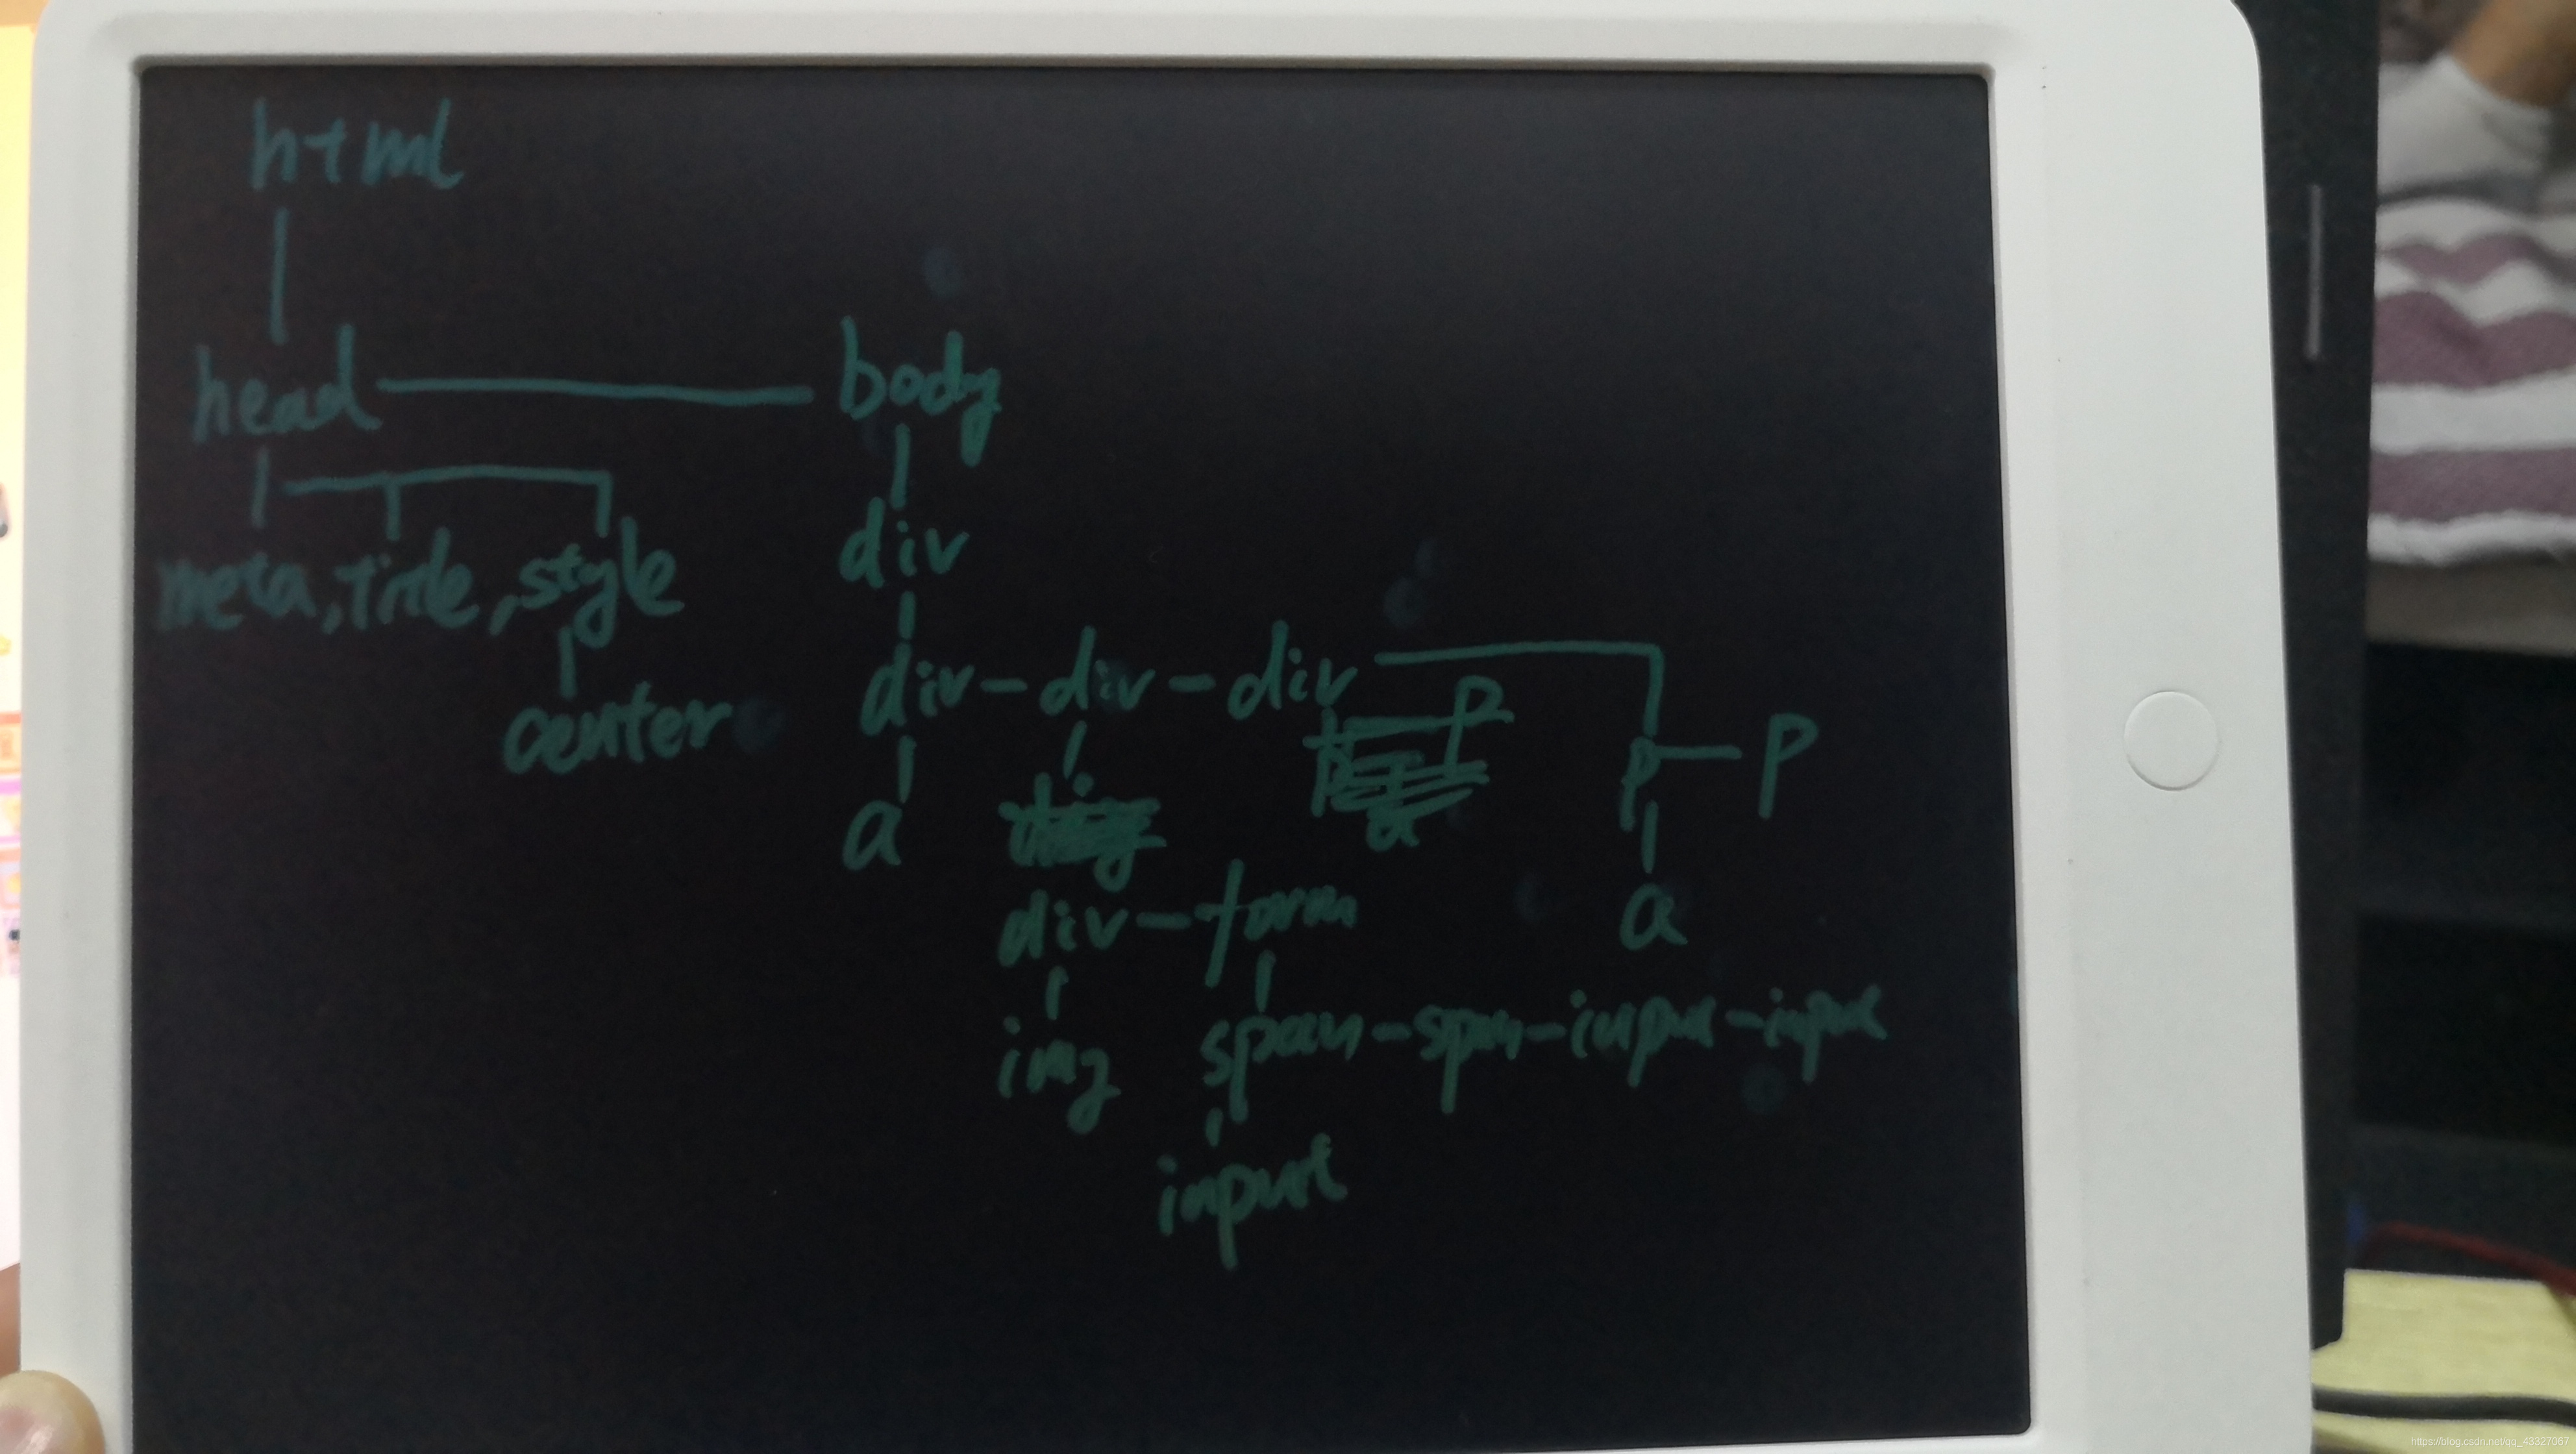 html
head body
div
meta, Title, style
div-div-div
center
p-p
a
div-form
a
img span-span-input-input
input
https://blog.csdn.net/qq_43327067